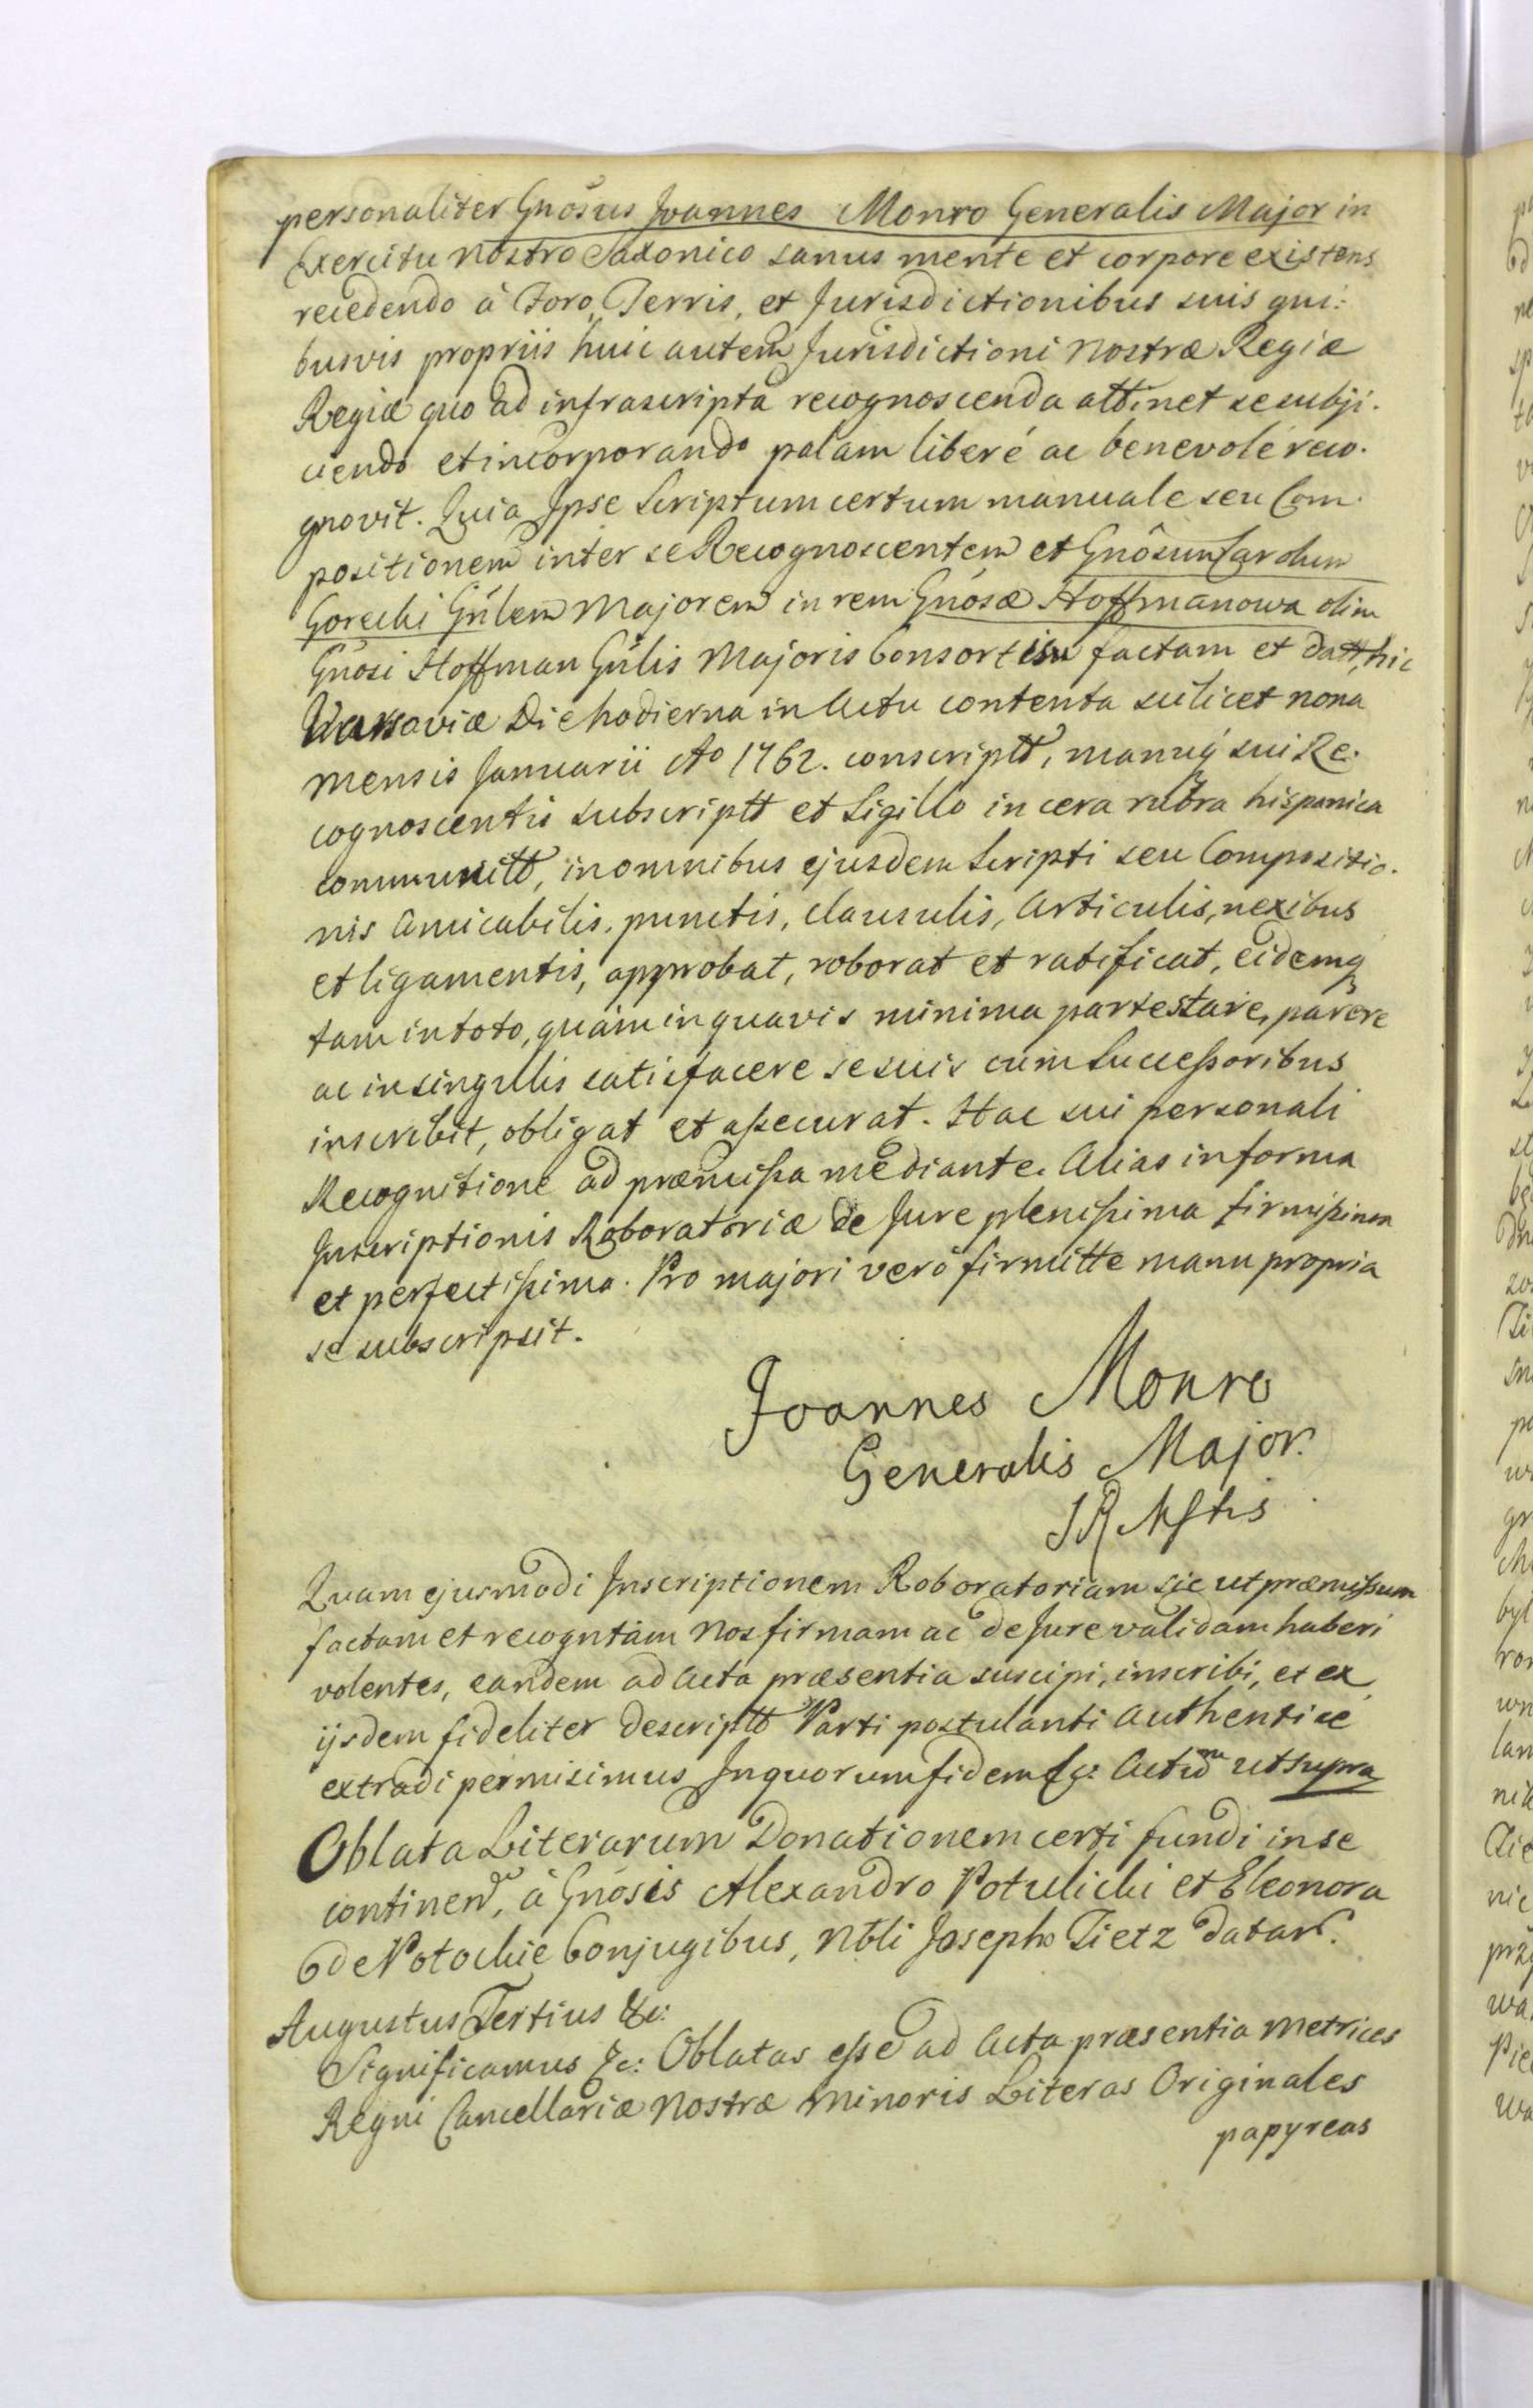 personaliter Gnosus Joannes Monro Generalis Major in
Exercitu Nostro Saxonico sanus mente et corpore existens
recedendo à Foro, Terris, et Jurisdictionibus suis qui:
busvis propriis huic autem Jurisdictioni Nostræ Regiæ
Regiæ quo ad infrascripta recognoscenda attinet se subji.
ciendo et incorporando palam liberé ac benevolé reco.
gnovit. Quia Ipse Scriptum certum manuale seu Com.
positionem inter se Recognoscentem et Gnôsum Carolum
Gorecki Gnlem Majorem in rem Gnosæ Hoffmanowa olim
Gnosi Hoffman Gnlis Majoris Consortem factam et datt, hic
Varsaviæ Die hodierna in Actu contenta scilicet nona
mensis Januarii Ao 1762. conscriptt, manuq sui Re.
cognoscentis subscriptt et Sigillo in cera rubra hispanica
communitt, in omnibus ejusdem Scripti seu Compositio.
nis Amicabilis, punctis, clausulis, Articulis, nexibus
et ligamentis, approbat, roborat et ratificat, eidemq
tam in toto, quàm in quavis minima parte stare, parere
ac in singulis satisfacere se suis cum Successoribus
inscribit, obligat et assecurat. Hac sui personali
Recognitione ad præmissa mediante. Alias in forma
Inscriptionis Roboratoriæ de Jure plenissima firmissima
et perfectissima. Pro majori verò firmitte manu propria
se subscripsit.
Joannes Monro
Generalis Major.
Quam ejusmodi Inscriptionem Roboratoriam sic ut præmissum
factam et recogntam Nos firmam ac de Jure validam haberi
volentes, eandem ad Acta præsentia suscipi, inscribi, et ex
ijsdem fideliter descriptt Parti postulanti Authentice
extradi permisimus In quorum fidem &c: Actum ut supra
Oblata Literarum Donationem certi fundi in se
continen, à Gnosis Alexandro Potulicki et Eleonora
de Potockie Conjugibus, Nbli Josepho Tietz datar.
Augustus Tertius &c:
Significamus &c: Oblatas esse ad Acta præsentia Metrices
Regni Cancellariæ Nostræ Minoris Literas Originales
papyreas